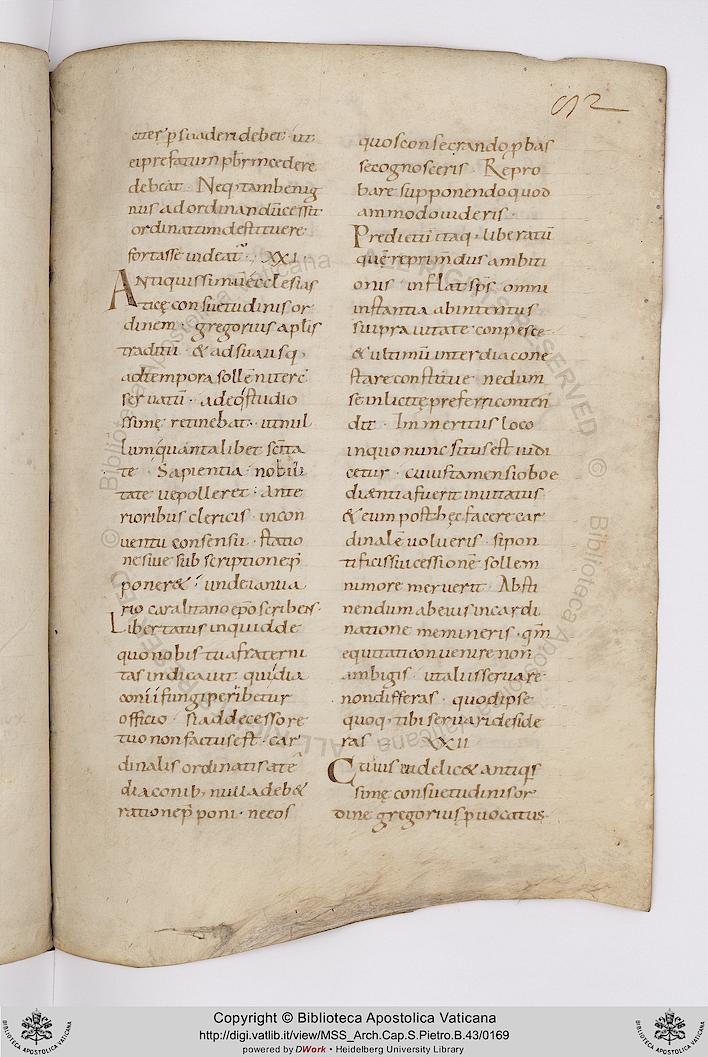 citer ꝑsuaderi debet · ut
ei prefatum pbrm cedere
debeat · Neq; tam benig
nus ad ordinandū cessit
ordinatum destituere
fortasse uideat᷑ ; XXI
Antiquissimū ecclesias
ticę consuetudinis or
dinem · gregorius aplis
traditū · & ad sua usq,
ad tempora sollēniter c̄
seruatū · adeo studio
sissimę retinebat · ut nul
lum quantalibet scīta
te · Sapientia · nobili
tate ue polleret · ante
rioribus clericis · in con
uentu consensu · statio
ne siue subscriptione p̄
poner& · unde ianua
rio caralitano epō scribens ·
Libertatus inquid de
quo nobis tua fraterni
tas indicauit qui dia
conii fungi peribetur
officio · si a decessore
tuo non factus est · car
dinalis ordinatis a te
diaconib; nulla deb&
ratione p̄poni · ne eos
quos consecrando ꝓbas
se cognosceris · Repro
bare supponendo quod
ammodo uideris ·
Predictū itaq · liberatū
quē reprimdus ambiti
onis · inflat sps · omni
instantia ab intentus
sui prauitate conpesce
& ultimū inter diacone
stare constitue · ne dum
se inlicitę preferri conten
dit · Inmeritus loco
in quo nunc situs est iudi
cetur · cuius tamen si oboe
dientia fuerit inuitatus
& eum posthęc facere car
dinalē uolueris · si pon
tificis sui cessionē sollem
ni more meruerit · Absti
nendum ab eius incardi
natione memineris · qm̄
equitati conuenire non
ambigis · ut aliis seruare
non differas · quod ipse
quoq · tibi seruari deside
ras XXII
Cuius uidelic& antiqs
simę consuetudinis or
dine gregorius ꝓuocatus